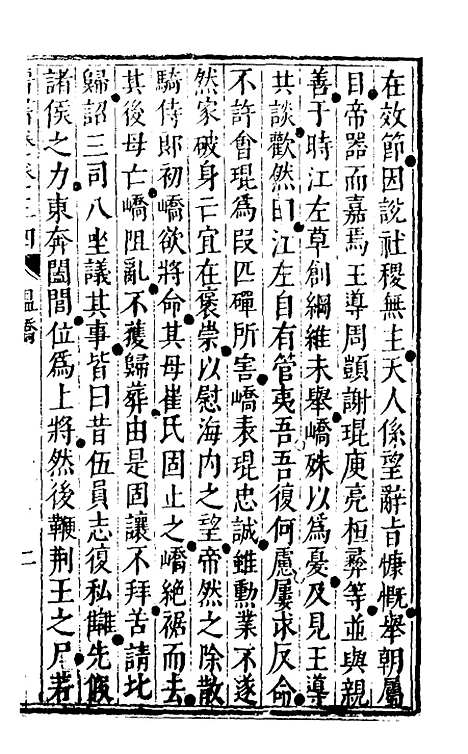 在效節因說社稷無主天人係望辭旨慷慨舉朝屬
目帝器而嘉焉王導周顗謝琨庾亮桓彝等並與親
善于時江左草創綱維未舉嶠殊以爲憂及見王導
共談歡然曰江左自有管夷吾吾復何慮屢求反命
不許會琨爲段匹磾所害嶠表琨忠誠雖勳業不遂
然家破身亡宜在褒崇以慰海内之望帝然之除散
騎侍郎初嶠欲將命其母崔氏固止之嶠絶裾而去
其後母亡嶠阻亂不獲歸葬由是固讓不拜苦請北
歸詔三司八坐議其事皆曰昔伍員志復私讎先假
諸侯之力東奔闔閭位爲上將然後鞭荆王之尸若
卷之三四
溫嶠
二